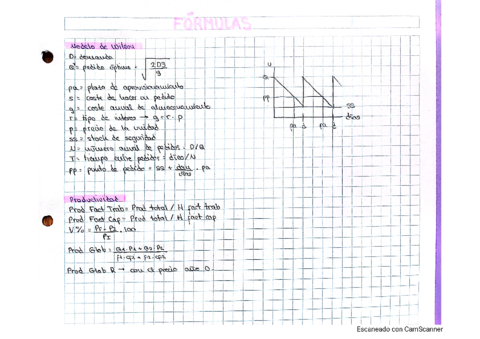 FÓRMULAS
Modelo de Wilson
D = demanda
Q* = pedido óptimo = √ 2DS / g
pa = plazo de aprovisionamiento
s = coste de hacer un pedido
g = coste anual de almacenamiento
r = tipo de interés → g = r · p
p = precio de la unidad
ss = stock de seguridad
N = número anual de pedidos = D/Q
T = tiempo entre pedidos = días/N
pp = punto de pedido = ss + · pa
U
Q
pp
ss
días
pa
pa
Productividad
Prod Fact Trab = Prod total / H fact trab
Prod Fact Cap = Prod total / H fact cap
V% = P1 - P2 / P2 · 100
Prod Glob =
Prod Glob R → con el precio año 0.
Escaneado con CamScanner